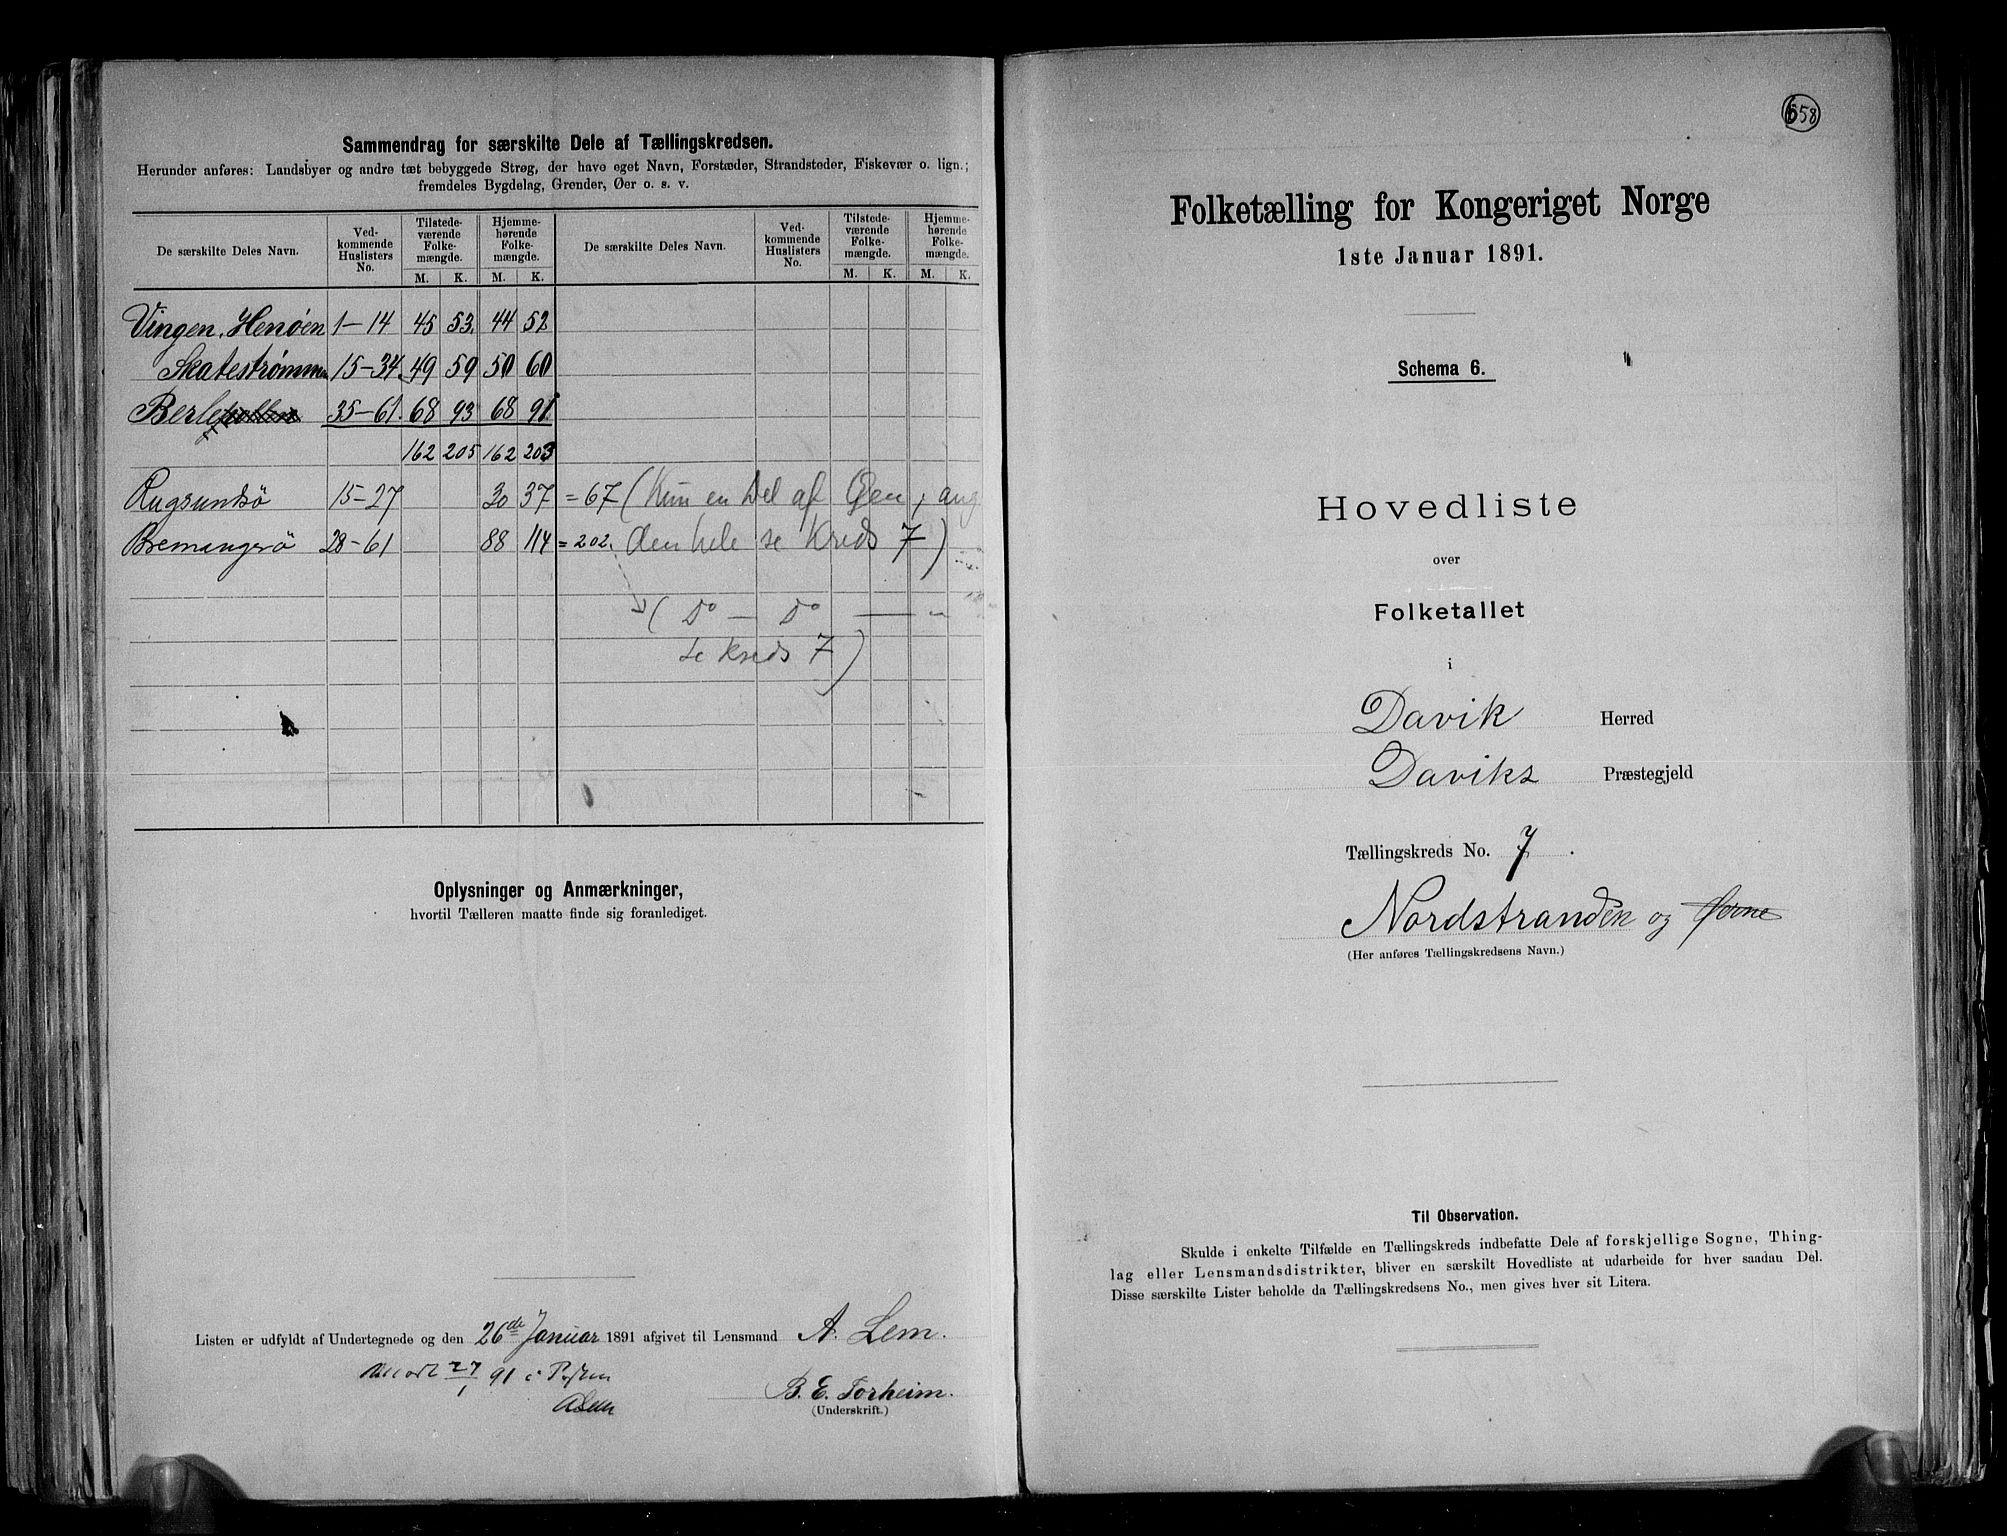 Sammendrag for særskilte Dele af Tællingskredsen.
Herunder anføres: Landsbyer og andre tæt bebyggede Strøg, der have eget Navn, Forstæder, Strandsteder, Fiskevær o. lign.;
fremdeles Bygdelag, Grender, Øer o. s. v.
De særskilte Deles Navn. Ved-kommende Huslisters No. Tilstede-værende Folke-mængde. Hjemme-hørende Folke-mængde. De særskilte Deles Navn. Ved-kommende Huslisters No. Tilstede-værende Folke-mængde. Hjemme-hørende Folke-mængde.
M. K. M. K. M. K. M. K.
Vingen, Henøen 1-14 45 53 44 52
Skatestrømmen 15-34 49 59 50 60
Berlepollen 35-61 68 93 68 91
162 205 162 203
Rugsundsö 15-27 30 37 = 67 (Kun en Del af Øen, ang.
Bremangersö 28-61 88 114 = 202. den hele se Kreds 7)
( Do — Do —
se Kreds 7 )
Oplysninger og Anmærkninger,
hvortil Tælleren maatte finde sig foranlediget.
Listen er udfyldt af Undertegnede og den 26de Januar 1891 afgivet til Lensmand A. Lem.
27/1 91 i Posten
ALem
B. E. Torheim.
(Underskrift.)
658
Folketælling for Kongeriget Norge
1ste Januar 1891.
Schema 6.
Hovedliste
over
Folketallet
i
Davik Herred
Daviks Præstegjeld
Tællingskreds No. 7.
Nordstranden og Øerne
(Her anføres Tællingskredsens Navn.)
Til Observation.
Skulde i enkelte Tilfælde en Tællingskreds indbefatte Dele af forskjellige Sogne, Thing-
lag eller Lensmandsdistrikter, bliver en særskilt Hovedliste at udarbeide for hver saadan Del.
Disse særskilte Lister beholde da Tællingskredsens No., men gives hver sit Litera.